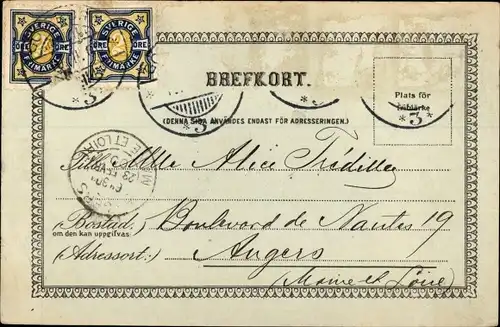 SVERIGE SVERIGE
ÖRE ÖRE ÖRE ÖRE
FRIMÄRKE FRIMÄRKE
BREFKORT.
Plats för
frimärke
(DENNA SIDA ANVÄNDES ENDAST FÖR ADRESSERINGEN.)
* 3 * * 3 * 3 * * 3 *
Till Mlle Alice
ET LOIRE
23
Bostad: Boulevard de Nantes 19
om den kan uppgifvas
Adressort: Angers
(Maine et Loire)